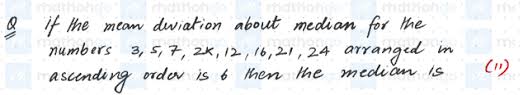 Q if the mean deviation about median for the
numbers 3, 5, 7, 2K, 12, 16, 21, 24 arranged in
ascending order is 6 then the median is (11)